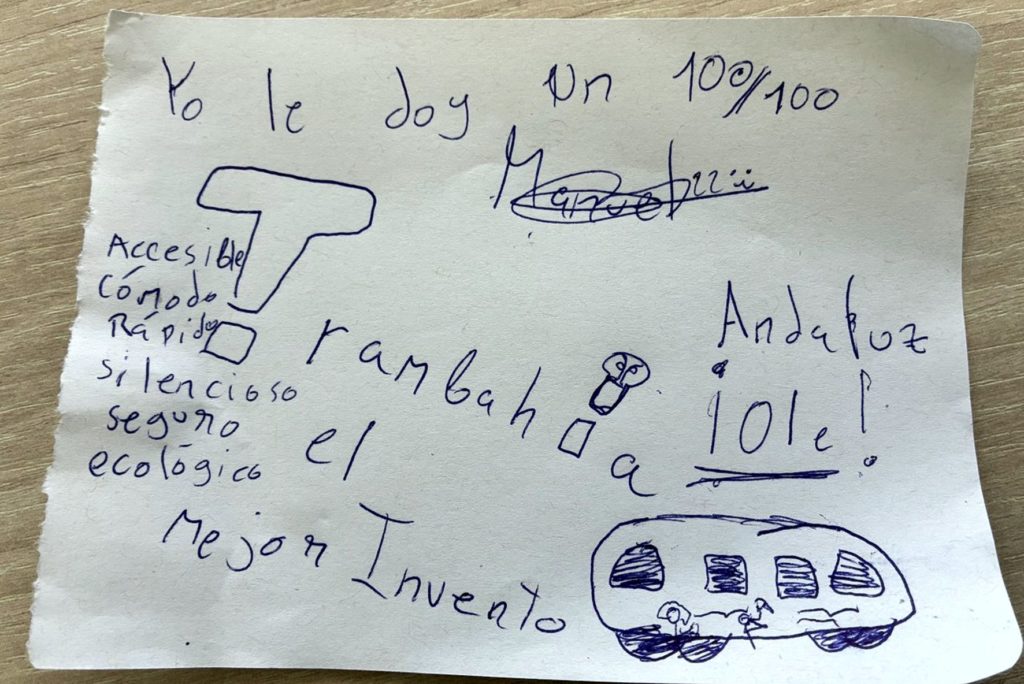 Yo le doy un 100/100
T
Accesible
Cómodo
Rápido
silencioso
seguro
ecológico
rambah
a
Andaluz
¡Ole!
el
Mejor Invento